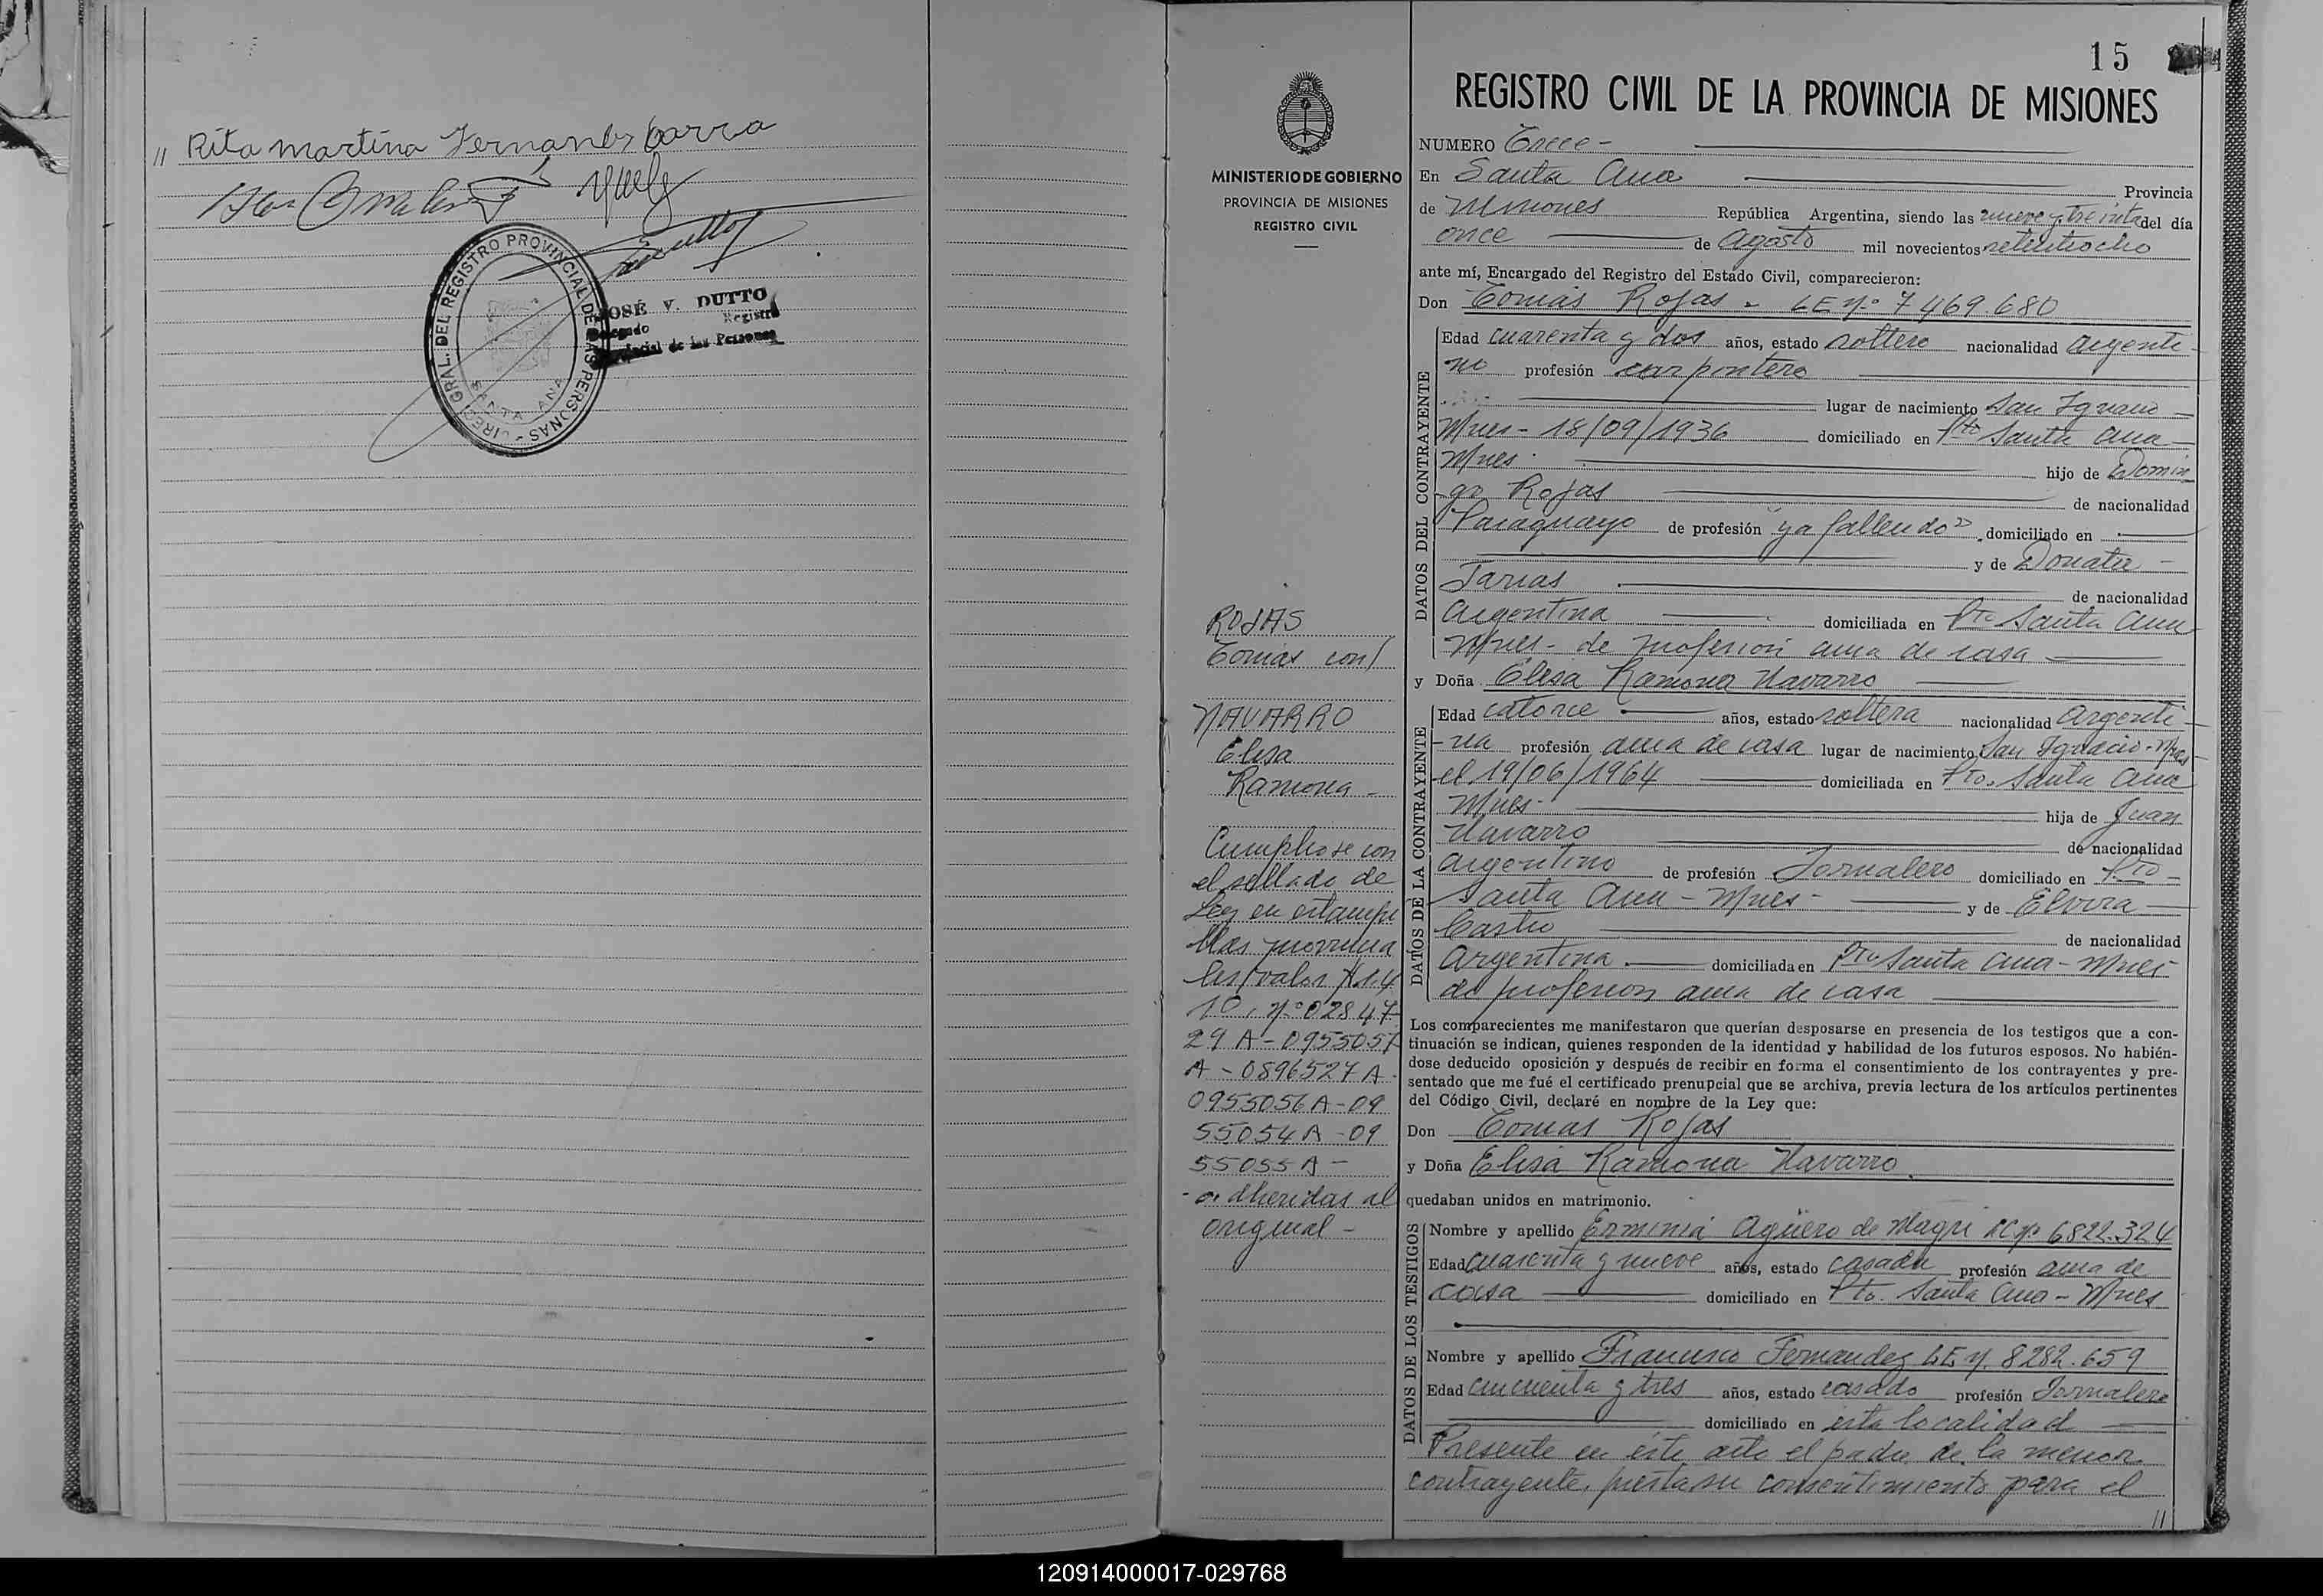 // Rita Martina Fernandez Barra
DIREC. GRAL. DEL REGISTRO PROVINCIAL DE LAS PERSONAS
SANTA ANA
JOSÉ V. DUTTO
Delegado Registro
Provincial de las Personas
15
MINISTERIO DE GOBIERNO
PROVINCIA DE MISIONES
REGISTRO CIVIL
ROJAS
Tomás con/
NAVARRO
Elisa
Ramona -
Cumpliose con
el sellado de
Ley en estampi
llas provincia
les/valor
10, Nº 02847
29 A - 0955057
A - 0896527 A -
0955056 A - 09
55054 A - 09
55055 A -
- adheridas al
original -
REGISTRO CIVIL DE LA PROVINCIA DE MISIONES
NUMERO Trece -
En Santa Ana Provincia
de Misiones República Argentina, siendo las nueve y treinta del día
once de Agosto mil novecientos setentiocho
ante mí, Encargado del Registro del Estado Civil, comparecieron:
Don Tomás Rojas - LE Nº 7469.680
DATOS DEL CONTRAYENTE
Edad cuarenta y dos años, estado soltero nacionalidad argenti-
no profesión carpintero
lugar de nacimiento San Ignacio -
Mnes - 18/09/1936 domiciliado en Pto Santa Ana -
Mnes - hijo de Domin
go Rojas de nacionalidad
Paraguayo de profesión "ya fallecido" domiciliado en
y de Donata -
Farias de nacionalidad
argentina domiciliada en Pto Santa Ana
Mnes - de profesión ama de casa
y Doña Elisa Ramona Navarro
DATOS DE LA CONTRAYENTE
Edad catorce años, estado soltera nacionalidad argenti-
-na profesión ama de casa lugar de nacimiento San Ignacio - Mnes
el 19/06/1964 domiciliada en Pto. Santa Ana
Mnes - hija de Juan
Navarro de nacionalidad
argentino de profesión Jornalero domiciliado en Pto -
Santa Ana - Mnes - y de Elvira
Castro de nacionalidad
Argentina domiciliada en Pto Santa Ana - Mnes
de profesion ama de casa
Los comparecientes me manifestaron que querían desposarse en presencia de los testigos que a con-
tinuación se indican, quienes responden de la identidad y habilidad de los futuros esposos. No habién-
dose deducido oposición y después de recibir en forma el consentimiento de los contrayentes y pre-
sentado que me fué el certificado prenupcial que se archiva, previa lectura de los artículos pertinentes
del Código Civil, declaré en nombre de la Ley que:
Don Tomas Rojas
y Doña Elisa Ramona Navarro
quedaban unidos en matrimonio.
DATOS DE LOS TESTIGOS
Nombre y apellido Erminia Agüero de Magri LC Nº 6822.324
Edad cuarenta y nueve años, estado casada profesión ama de
casa domiciliado en Pto. Santa Ana - Mnes
Nombre y apellido Francisco Fernandez LE Nº 8282.659
Edad cincuenta y tres años, estado casado profesión Jornalero
domiciliado en esta localidad
Presente en éste acto el padre de la menor
contrayente, presta su consentimiento para el
//
120914000017-029768